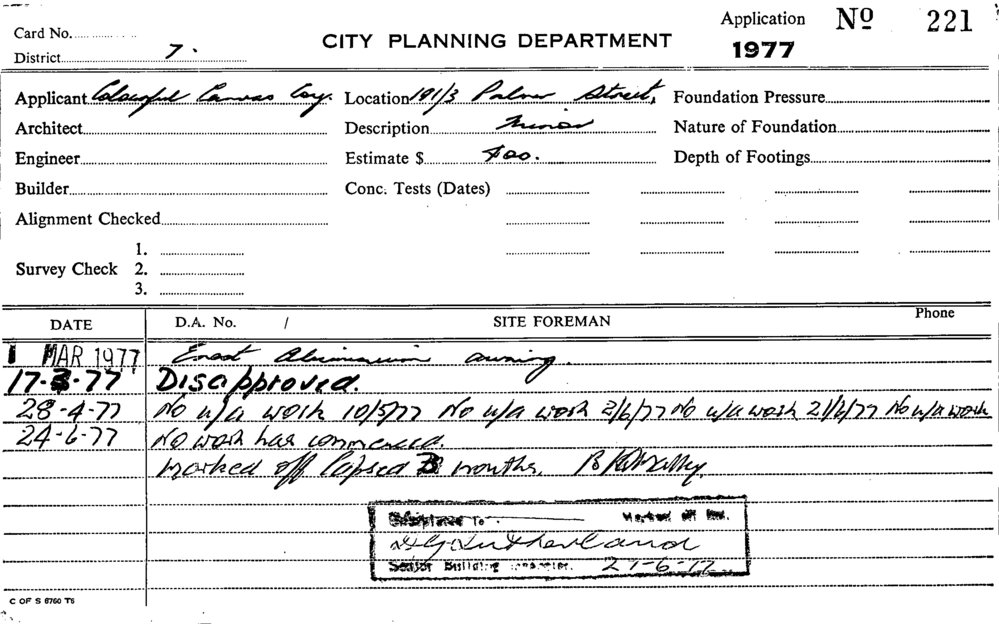 Card No.
District 7.
CITY PLANNING DEPARTMENT
Application No 221
1977
Applicant Colourful Canvas Coy. Location 191/3 Palmer Street, Foundation Pressure
Architect Description Minor Nature of Foundation
Engineer Estimate $ 400. Depth of Footings
Builder Conc. Tests (Dates)
Alignment Checked
1.
Survey Check 2.
3.
DATE D.A. No. / SITE FOREMAN Phone
1 MAR 1977 Erect Aluminium awning.
17-3-77 Disapproved.
28-4-77 No u/a work 10/5/77 No u/a work 2/6/77 No u/a work 21/6/77 No u/a work
24-6-77 No work has commenced.
marked off lapsed 3 months. B
to Marked off
Sutherland
Senior Building Inspector. 27-6-77
C OF S 6760 T5